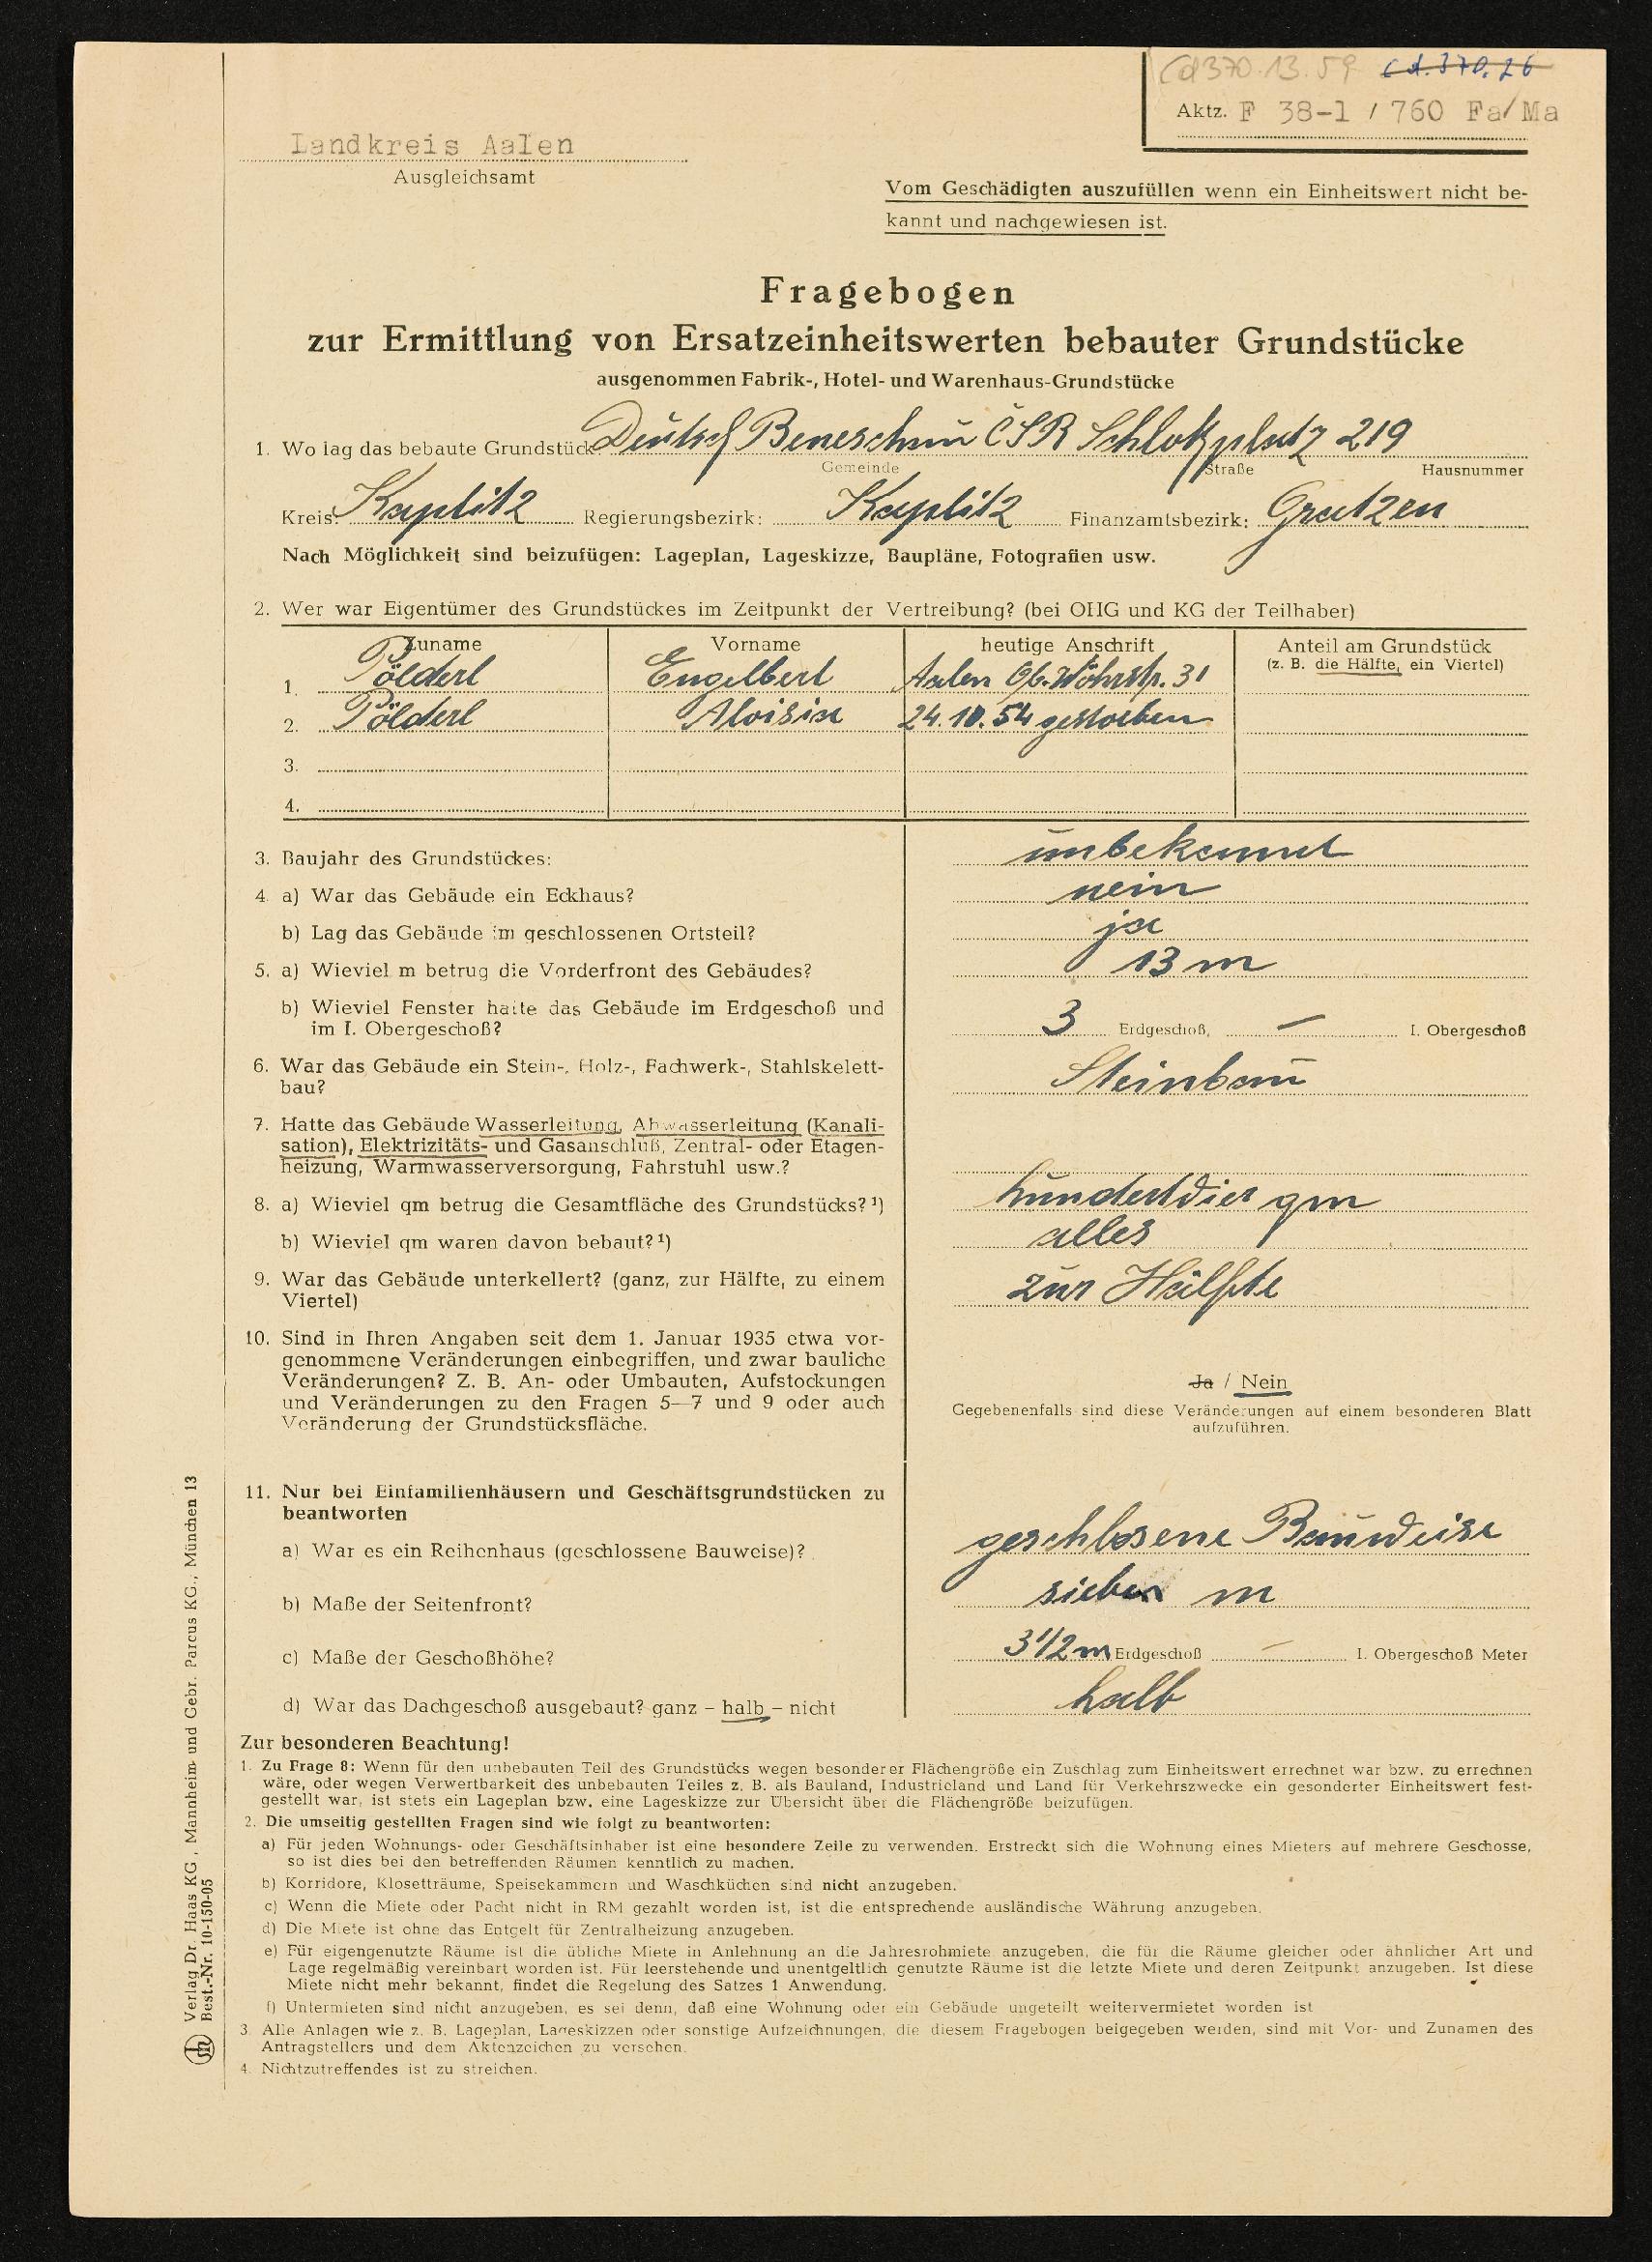 Cd 370.13.59 Cd.370.26
Aktz. F 38-1 / 760 Fa/Ma
Landkreis Aalen
Ausgleichsamt
Vom Geschädigten auszufüllen wenn ein Einheitswert nicht be-
kannt und nachgewiesen ist.
Fragebogen
zur Ermittlung von Ersatzeinheitswerten bebauter Grundstücke
ausgenommen Fabrik-, Hotel- und Warenhaus-Grundstücke
1. Wo lag das bebaute Grundstück Deutsch Beneschau ČSR Schloßplatz 219
Gemeinde Straße Hausnummer
Kreis: Kaplitz Regierungsbezirk: Kaplitz Finanzamtsbezirk: Gratzen
Nach Möglichkeit sind beizufügen: Lageplan, Lageskizze, Baupläne, Fotografien usw.
2. Wer war Eigentümer des Grundstückes im Zeitpunkt der Vertreibung? (bei OHG und KG der Teilhaber)
Zuname Vorname heutige Anschrift Anteil am Grundstück
(z. B. die Hälfte, ein Viertel)
1. Pölderl Engelbert Aalen Ob. Wöhrstr. 31
2. Pölderl Aloisia 24.10.54 gestorben
3.
4.
3. Baujahr des Grundstückes: unbekannt
4. a) War das Gebäude ein Eckhaus? nein
b) Lag das Gebäude im geschlossenen Ortsteil? ja
5. a) Wieviel m betrug die Vorderfront des Gebäudes? 13 m
b) Wieviel Fenster hatte das Gebäude im Erdgeschoß und
im I. Obergeschoß? 3 Erdgeschoß, — I. Obergeschoß
6. War das Gebäude ein Stein-, Holz-, Fachwerk-, Stahlskelett-
bau? Steinbau
7. Hatte das Gebäude Wasserleitung, Abwasserleitung (Kanali-
sation), Elektrizitäts- und Gasanschluß, Zentral- oder Etagen-
heizung, Warmwasserversorgung, Fahrstuhl usw.?
8. a) Wieviel qm betrug die Gesamtfläche des Grundstücks? ¹) hundertvier qm
b) Wieviel qm waren davon bebaut? ¹) alles
9. War das Gebäude unterkellert? (ganz, zur Hälfte, zu einem
Viertel) zur Hälfte
10. Sind in Ihren Angaben seit dem 1. Januar 1935 etwa vor-
genommene Veränderungen einbegriffen, und zwar bauliche
Veränderungen? Z. B. An- oder Umbauten, Aufstockungen
und Veränderungen zu den Fragen 5—7 und 9 oder auch
Veränderung der Grundstücksfläche.
Ja / Nein
Gegebenenfalls sind diese Veränderungen auf einem besonderen Blatt
aufzuführen.
11. Nur bei Einfamilienhäusern und Geschäftsgrundstücken zu
beantworten
a) War es ein Reihenhaus (geschlossene Bauweise)? geschlosene Bauweise
b) Maße der Seitenfront? sieben m
c) Maße der Geschoßhöhe? 3 1/2 m Erdgeschoß — I. Obergeschoß Meter
d) War das Dachgeschoß ausgebaut? ganz – halb – nicht halb
Zur besonderen Beachtung!
1. Zu Frage 8: Wenn für den unbebauten Teil des Grundstücks wegen besonderer Flächengröße ein Zuschlag zum Einheitswert errechnet war bzw. zu errechnen
wäre, oder wegen Verwertbarkeit des unbebauten Teiles z. B. als Bauland, Industrieland und Land für Verkehrszwecke ein gesonderter Einheitswert fest-
gestellt war, ist stets ein Lageplan bzw. eine Lageskizze zur Übersicht über die Flächengröße beizufügen.
2. Die umseitig gestellten Fragen sind wie folgt zu beantworten:
a) Für jeden Wohnungs- oder Geschäftsinhaber ist eine besondere Zeile zu verwenden. Erstreckt sich die Wohnung eines Mieters auf mehrere Geschosse,
so ist dies bei den betreffenden Räumen kenntlich zu machen.
b) Korridore, Klosetträume, Speisekammern und Waschküchen sind nicht anzugeben.
c) Wenn die Miete oder Pacht nicht in RM gezahlt worden ist, ist die entsprechende ausländische Währung anzugeben.
d) Die Miete ist ohne das Entgelt für Zentralheizung anzugeben.
e) Für eigengenutzte Räume ist die übliche Miete in Anlehnung an die Jahresrohmiete anzugeben, die für die Räume gleicher oder ähnlicher Art und
Lage regelmäßig vereinbart worden ist. Für leerstehende und unentgeltlich genutzte Räume ist die letzte Miete und deren Zeitpunkt anzugeben. Ist diese
Miete nicht mehr bekannt, findet die Regelung des Satzes 1 Anwendung.
f) Untermieten sind nicht anzugeben, es sei denn, daß eine Wohnung oder ein Gebäude ungeteilt weitervermietet worden ist
3. Alle Anlagen wie z. B. Lageplan, Lageskizzen oder sonstige Aufzeichnungen, die diesem Fragebogen beigegeben werden, sind mit Vor- und Zunamen des
Antragstellers und dem Aktenzeichen zu versehen.
4. Nichtzutreffendes ist zu streichen.
Verlag Dr. Haas KG., Mannheim und Gebr. Parcus KG., München 13
Best.-Nr. 10-150-05